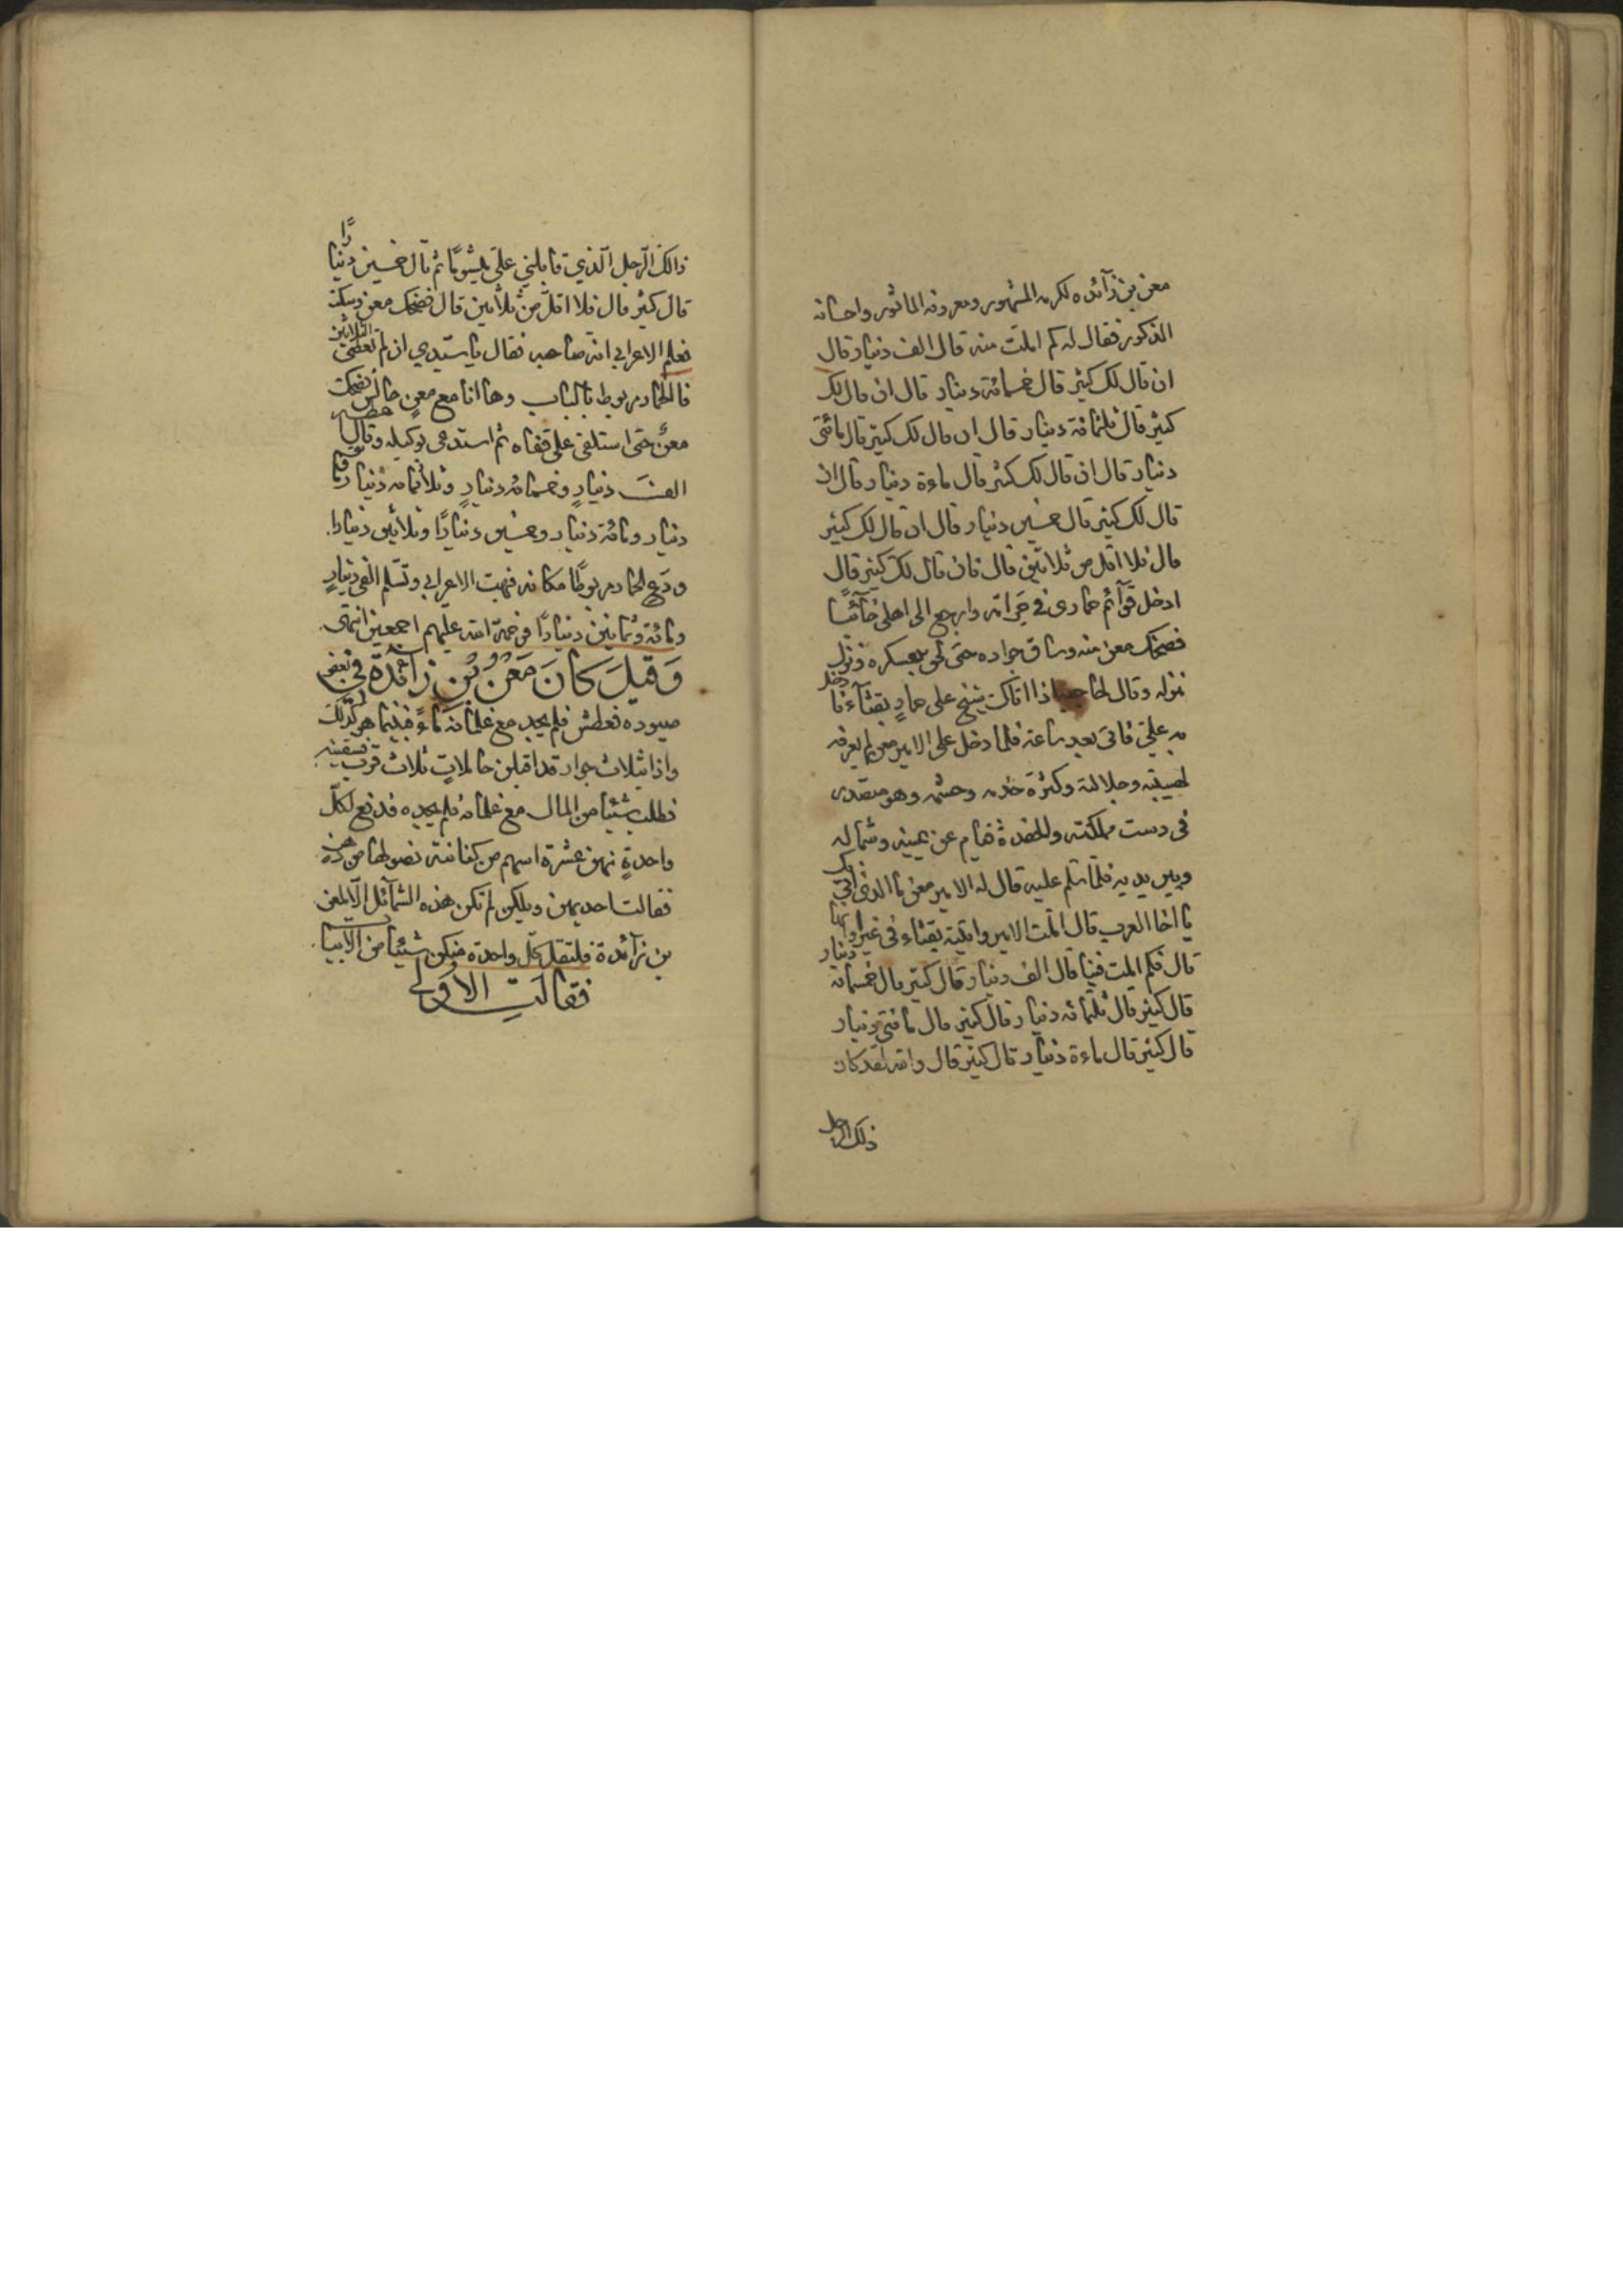 معن بن زآئده لكرمه المشهور ومعروفه الماثور واحسانه
المذكور فقال له كم املت منه قال الف دينار قال
ان قال لك كثير قال خمسمائة دينار قال ان قال لك
كثير قال ثلثمائة دينار قال ان قال لك كثير قال مائتى
دينار قال ان قال لك كثير قال ماءة دينار قال ان
قال لك كثير قال خمسين دينار قال ان قال لك كثير
قال فلا اقل من ثلاثين قال فان قال لك كثير قال
ادخل قوآئم حمارى في حرامه وارجع الى اهلى خآئبًا
فضحك معن منه وساق جواده حتى لحق بعسكره ونزل
منزله وقال لحاجبه اذا اتاك شيخ على حمارٍ بقثآء فادخل
به علىّ فاتى بعد ساعة فلما دخل على الامير معن لم يعرفه
لهيبته وجلالته وكثرة خدمه وحشمه وهو متصدر
فى دست مملكته والحفدة قيام عن يمينه وشماله
وبين يديه فلما سلم عليه قال له الامير معن ما الذى اتى بك
يا اخا العرب قال املت الامير واتيته بقثاء فى غير اوانها
قال فكم املت فينا قال الف دينار قال كثير قال خمسمائة دينار
قال كثير قال ثلثمائة دينار قال كثير قال مائتى دينار
قال كثير قال ماءة دينار قال كثير قال والله لقد كان
ذلك الرجل
ذالك الرّجل الّذي قابلني علىّ ميشومًا ثم قال خمسين دينارًا
قال كثير قال فلا اقلّ من ثلاثين قال فضحك معن وسكت
فعلم الاعرابي انه صاحبه فقال يا سيّدي ان لم تعطنى الثلاثين
فالحمار مربوط بالباب وها انا مع معنٍ جالس فضحك
معنٌ حتى استلقى على قفاه ثم استدعى بوكيله وقال اعطيه
الفَ دينارٍ وخمسمائة دينارٍ وثلاثمائة دينار ومائتى
دينار ومائة دينار وخمسين دينارًا وثلاثين دينارا
ودَع الحمار مربوطًا مكانه فبهت الاعرابي وتسلم الفى دينارٍ
ومائة وثمانين دينارًا فرحمة الله عليهم اجمعين انتهى
وَقيلَ كَانَ مَعْنُ بْنِ زآئدَة في بعض
صيوده فعطش فلم يجد مع غلمانه ماءً فبينما هو كذلك
واذا بثلاث جوار قد اقبلن حاملاتٍ ثلاث قرب فسقينه
فطلب شيئا من المال مع غلمانه فلم يجده فدفع لكلّ
واحدةٍ منهن عشرة اسهم من كنانته نصولها من ذهب
فقالت احديهن ويلكن لم تكن هذه الشمآئل الّا لمعن
بن زآئدة فلتقل كلّ واحدة منكن شيئًا من الابيات
فقالتِ الاولى